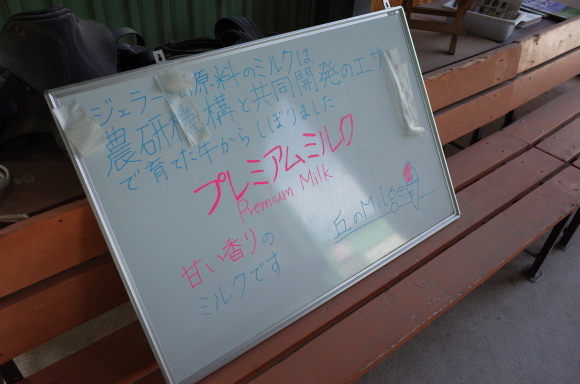 ジェラート原料のミルクは
農研機構と共同開発のエサ
で育てた牛からしぼりました
プレミアムミルク
Premium Milk
甘い香りの
ミルクです
丘のMilgee